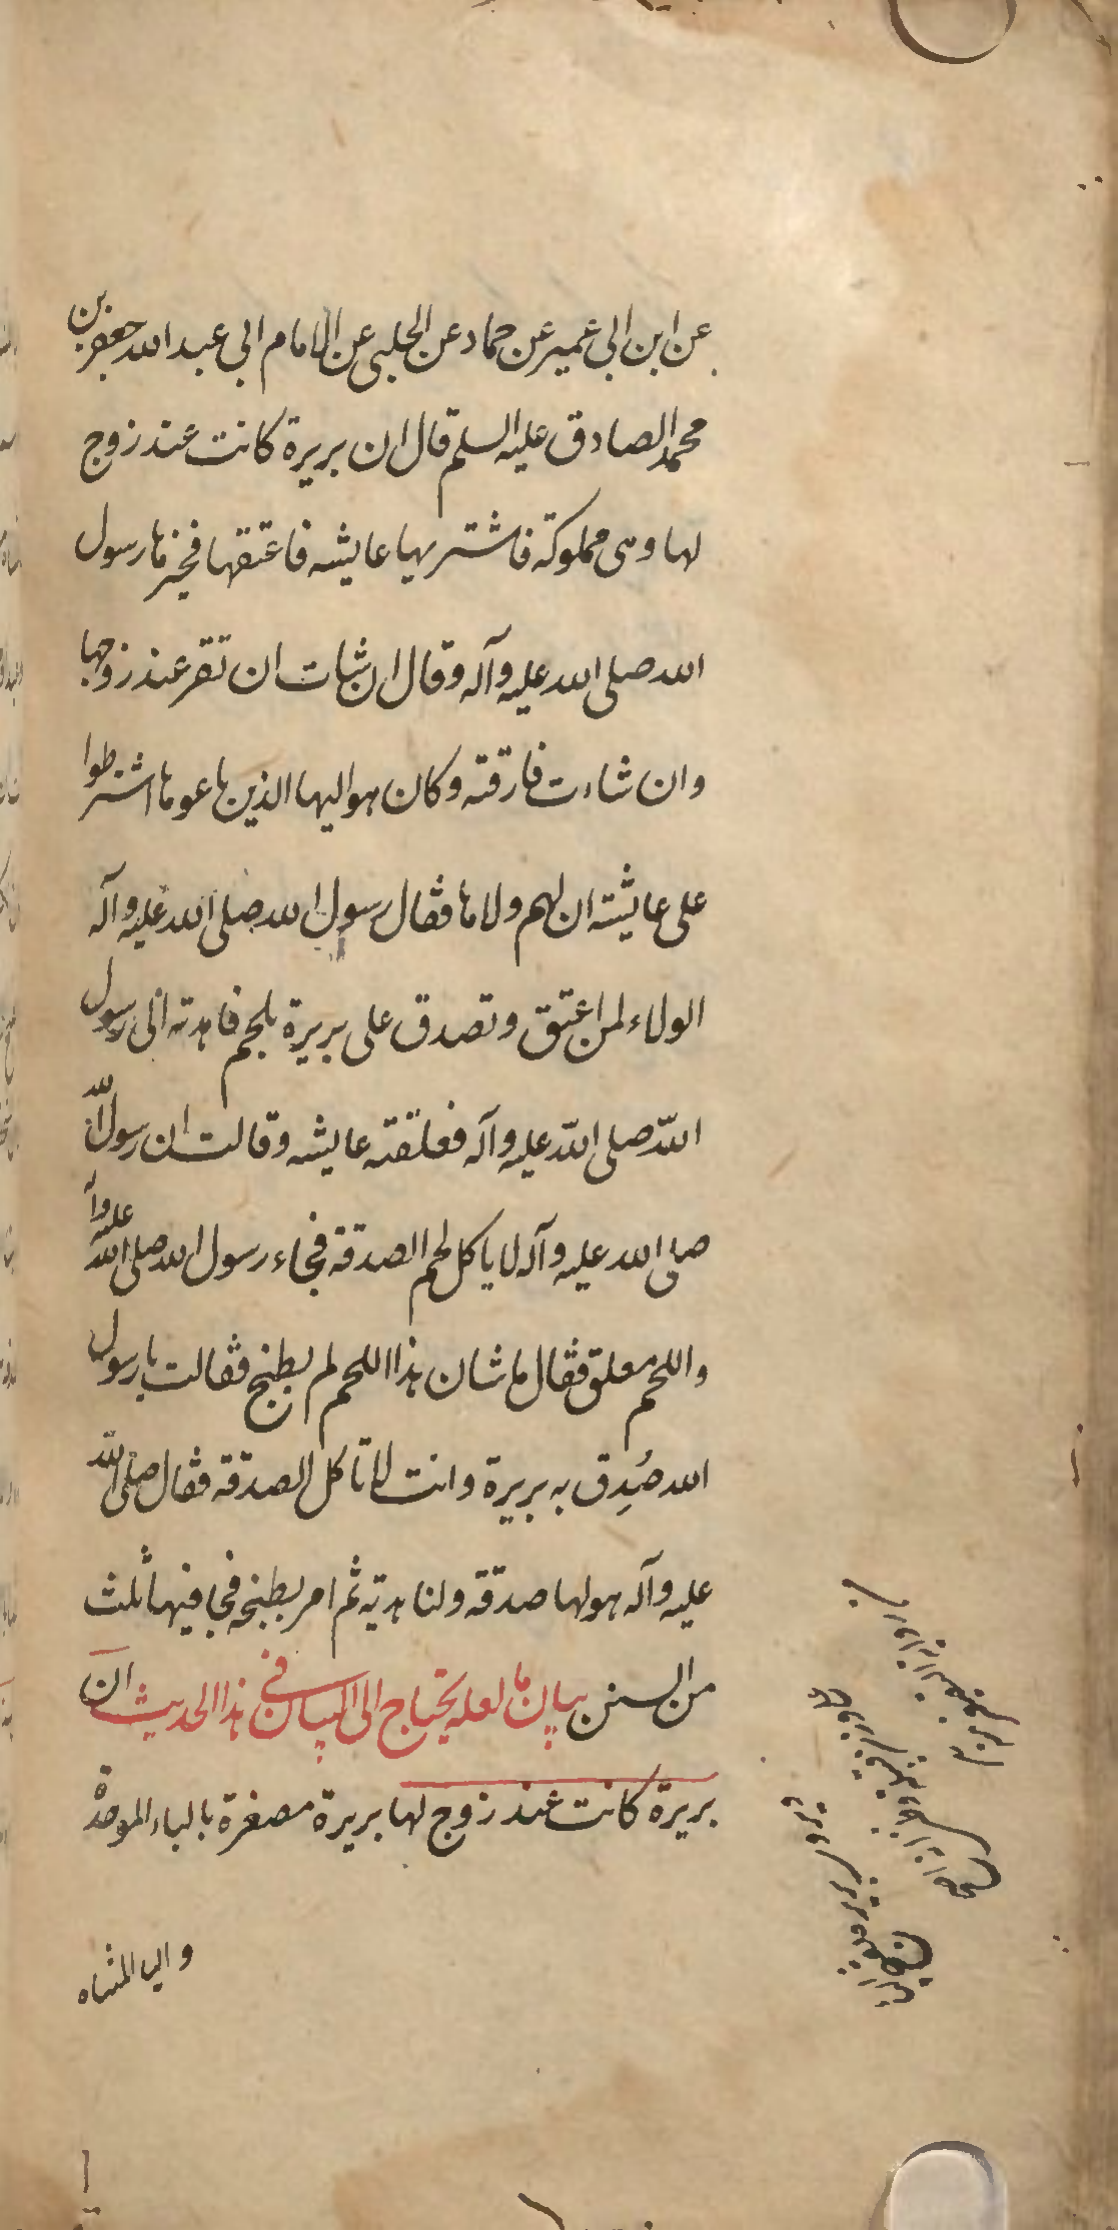 عن ابن ابی عمیر عن حماد عن الحلبی عن الامام ابی عبد الله جعفر بن
محمد الصادق علیه السلم قال ان بریرة کانت عند زوج
لها وهی مملوکة فاشتریها عایشه فاعتقها فخیرها رسول
الله صلی الله علیه وآله وقال ان شات ان تقر عند زوجها
وان شاءت فارقته وکان موالیها الذین باعوها اشترطوا
علی عایشة ان لهم ولاها فقال رسول الله صلی الله علیه وآله
الولاء لمن اعتق وتصدق علی بریرة بلحم فاهدته الی رسول
الله صلی الله علیه وآله فعلقته عایشه وقالت ان رسول الله
صلی الله علیه وآله لا یاکل لحم الصدقة فجاء رسول الله صلی الله علیه وآ
واللحم معلق فقال ما شان هذا اللحم لم یطبخ فقالت یا رسول
الله صُدِق به بریرة وانت لا تاکل الصدقة فقال صلی الله
علیه وآله هو لها صدقة ولنا هدیة ثم امر بطبخه فجا فیها ثلث
من السنن بیان ما لعله یحتاج الی البیان فی هذا الحدیث ان
بریرة کانت عند زوج لها بریرة مصغرة بالباء الموحدة
والیا المثناه